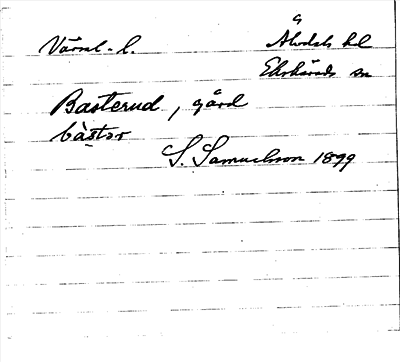 Värml. l.
Älvdals hd
Ekshärads sn
Basterud, gård
bàstər
S. Samuelsson 1899